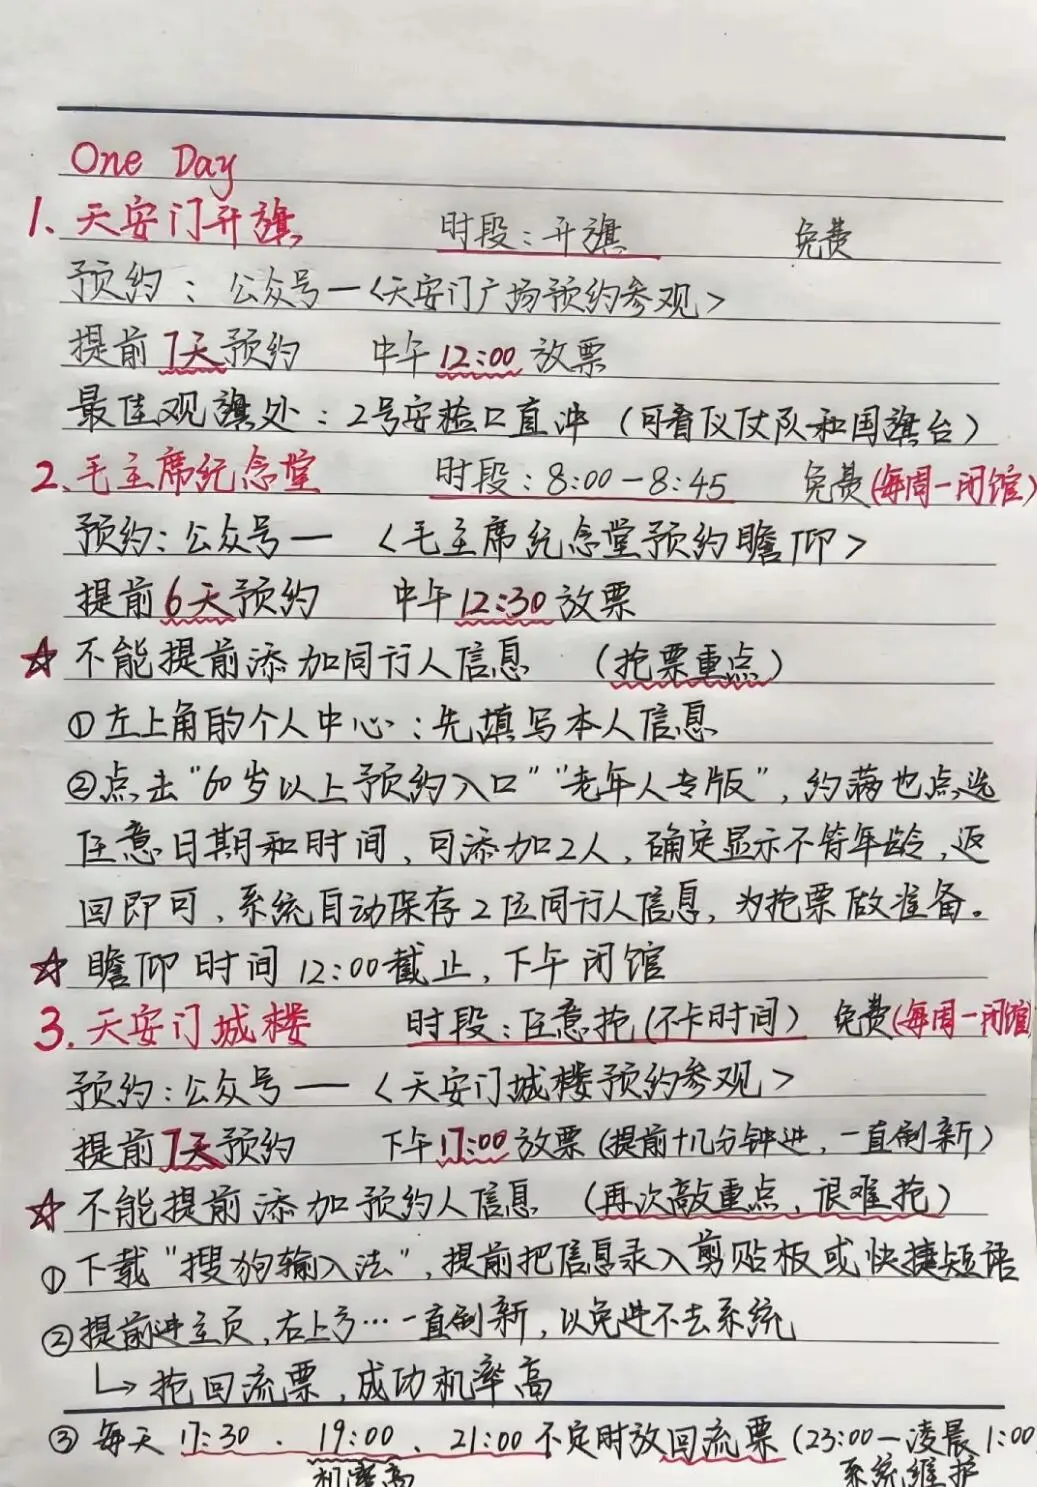 One Day
1、天安门升旗 时段：升旗 免费
预约：公众号—<天安门广场预约参观>
提前7天预约 中午12:00放票
最佳观旗处：2号安检口直冲（可看仪仗队和国旗台）
2、毛主席纪念堂 时段：8:00—8:45 免费(每周一闭馆)
预约：公众号— <毛主席纪念堂预约瞻仰>
提前6天预约 中午12:30放票
☆不能提前添加同行人信息 （抢票重点）
①左上角的个人中心：先填写本人信息
②点击“60岁以上预约入口”“老年人专版”，约满也点选
任意日期和时间，可添加2人，确定显示不符年龄，返
回即可，系统自动保存2位同行人信息，为抢票做准备。
☆瞻仰时间12:00截止，下午闭馆
3.天安门城楼 时段：任意抢(不卡时间) 免费(每周一闭馆)
预约：公众号—<天安门城楼预约参观>
提前7天预约 下午17:00放票(提前十几分钟进，一直刷新)
☆不能提前添加预约人信息 (再次敲重点、很难抢)
①下载“搜狗输入法”，提前把信息录入剪贴板或快捷短语
②提前进主页，右上方…一直刷新，以免进不去系统
↳抢回流票，成功机率高
③每天17:30、19:00、21:00不定时放回流票(23:00—凌晨1:00
机率高 系统维护